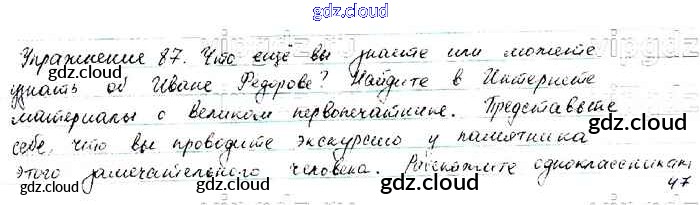 gdz.cloud
Упражнение 87. Что ещё вы знаете или можете
узнать об Иване Федорове? Найдите в Интернете
материалы о великом первопечатнике. Представьте
себе, что вы проводите экскурсию у памятника
этого замечательного человека. Расскажите одноклассникам
47
gdz.cloud
gdz.cloud
gdz.cloud
gdz.cloud
gdz.cloud
gdz.cloud